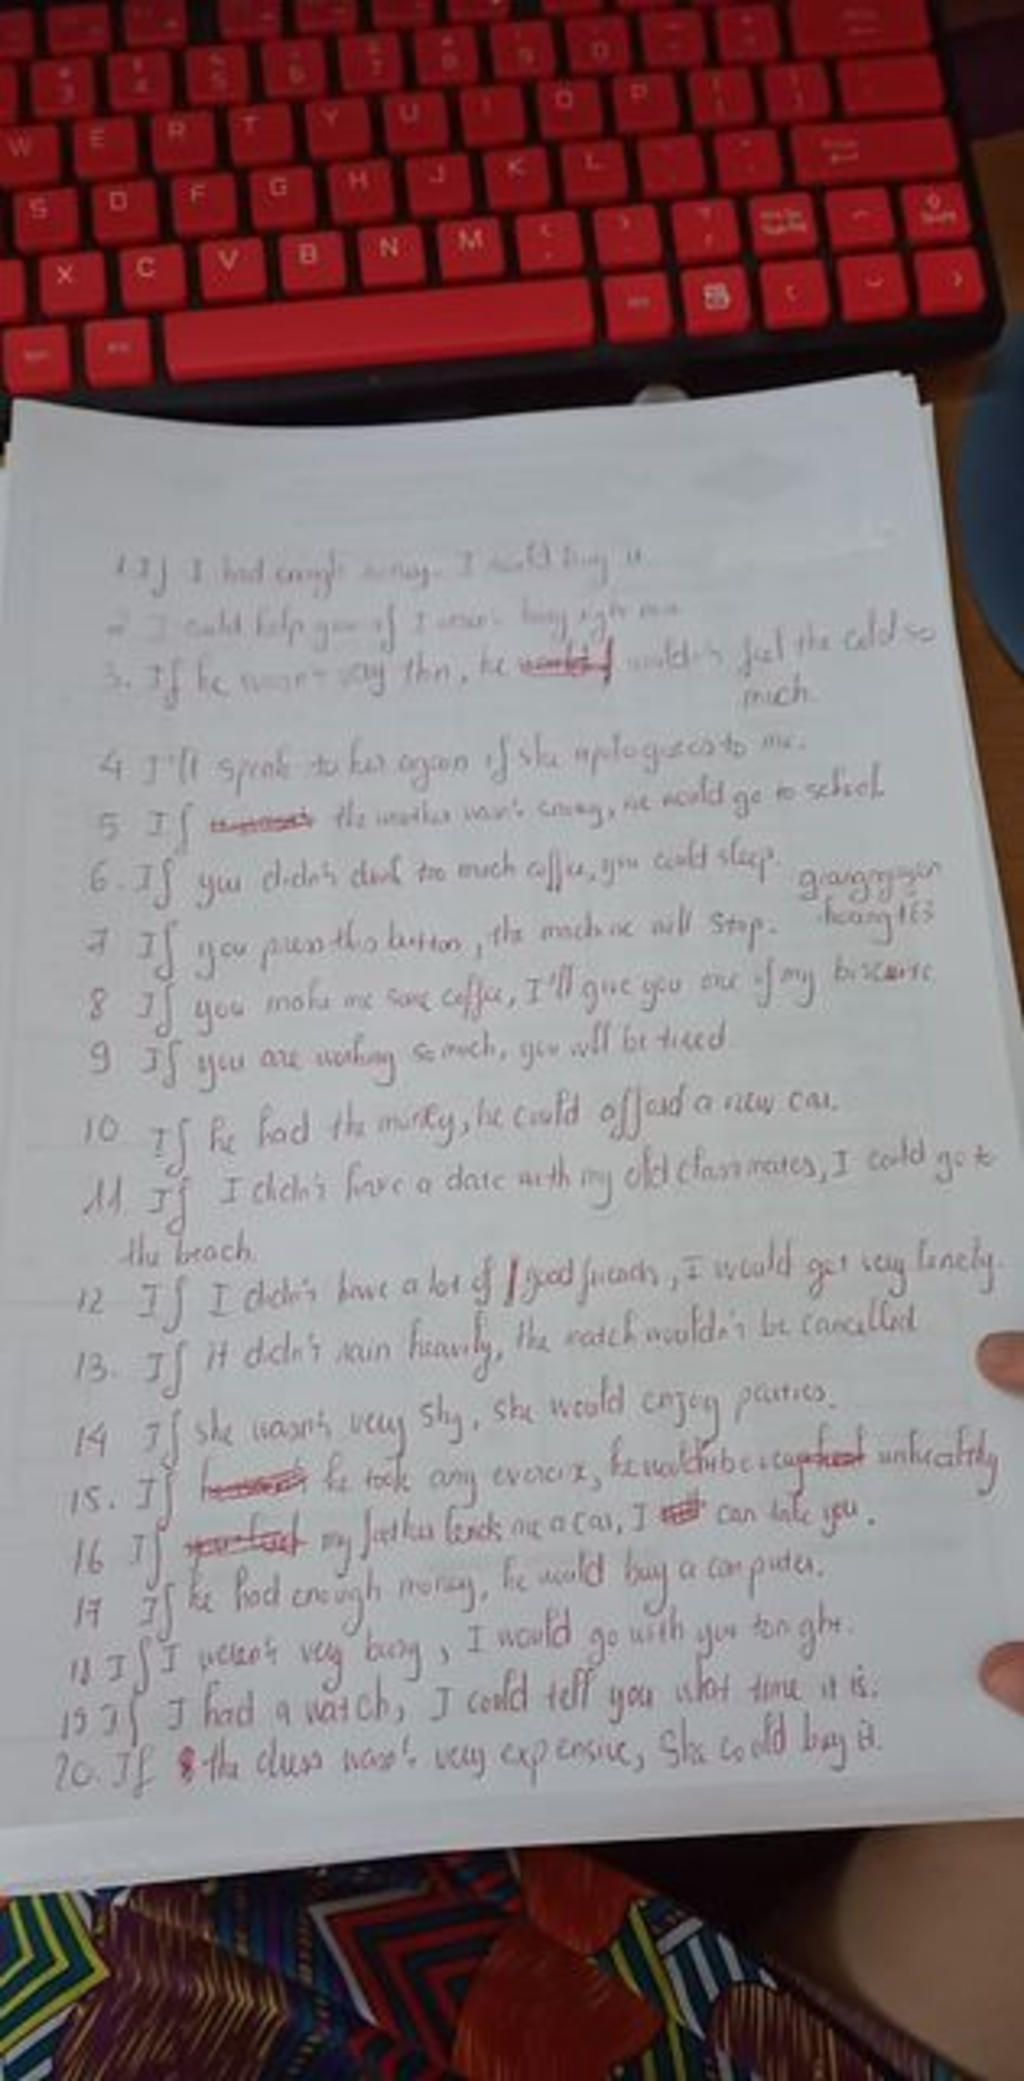 3 4 5 6 7 8 9 0
W E R T Y U I O P
S D F G H J K L
X C V B N M
1 If I had enough money. I could buy it
2 I could help you if I wasn't busy right now
3. If he wasn't very thin, he wouldn't feel the cold so
much.
4 I'll speak to her again if she apologizes to me.
5 If the weather wasn't, we would go to school.
6. If you didn't drink too much coffee, you could sleep.
giangnguyen
hoang163
7 If you press this button, the machine will stop.
8 If you make me some coffee, I'll give you one of my
9 If you are working so much, you will be tired
10 If he had the money, he could afford a new car.
11 If I didn't have a date with my old classmates, I could go to
the beach.
12 If I didn't have a lot of good friends, I would get very lonely.
13. If it didn't rain heavily, the match wouldn't be cancelled
14 If she wasn't very shy, she would enjoy parties.
15. If he took any exercise, he wouldn't be unhealthy
16 If my father lends me a car, I can take you.
17 If he had enough money, he would buy a computer.
18 If I weren't very busy, I would go with you tonight.
19 If I had a watch, I could tell you what time it is.
20. If the dress wasn't very expensive, She could buy it.